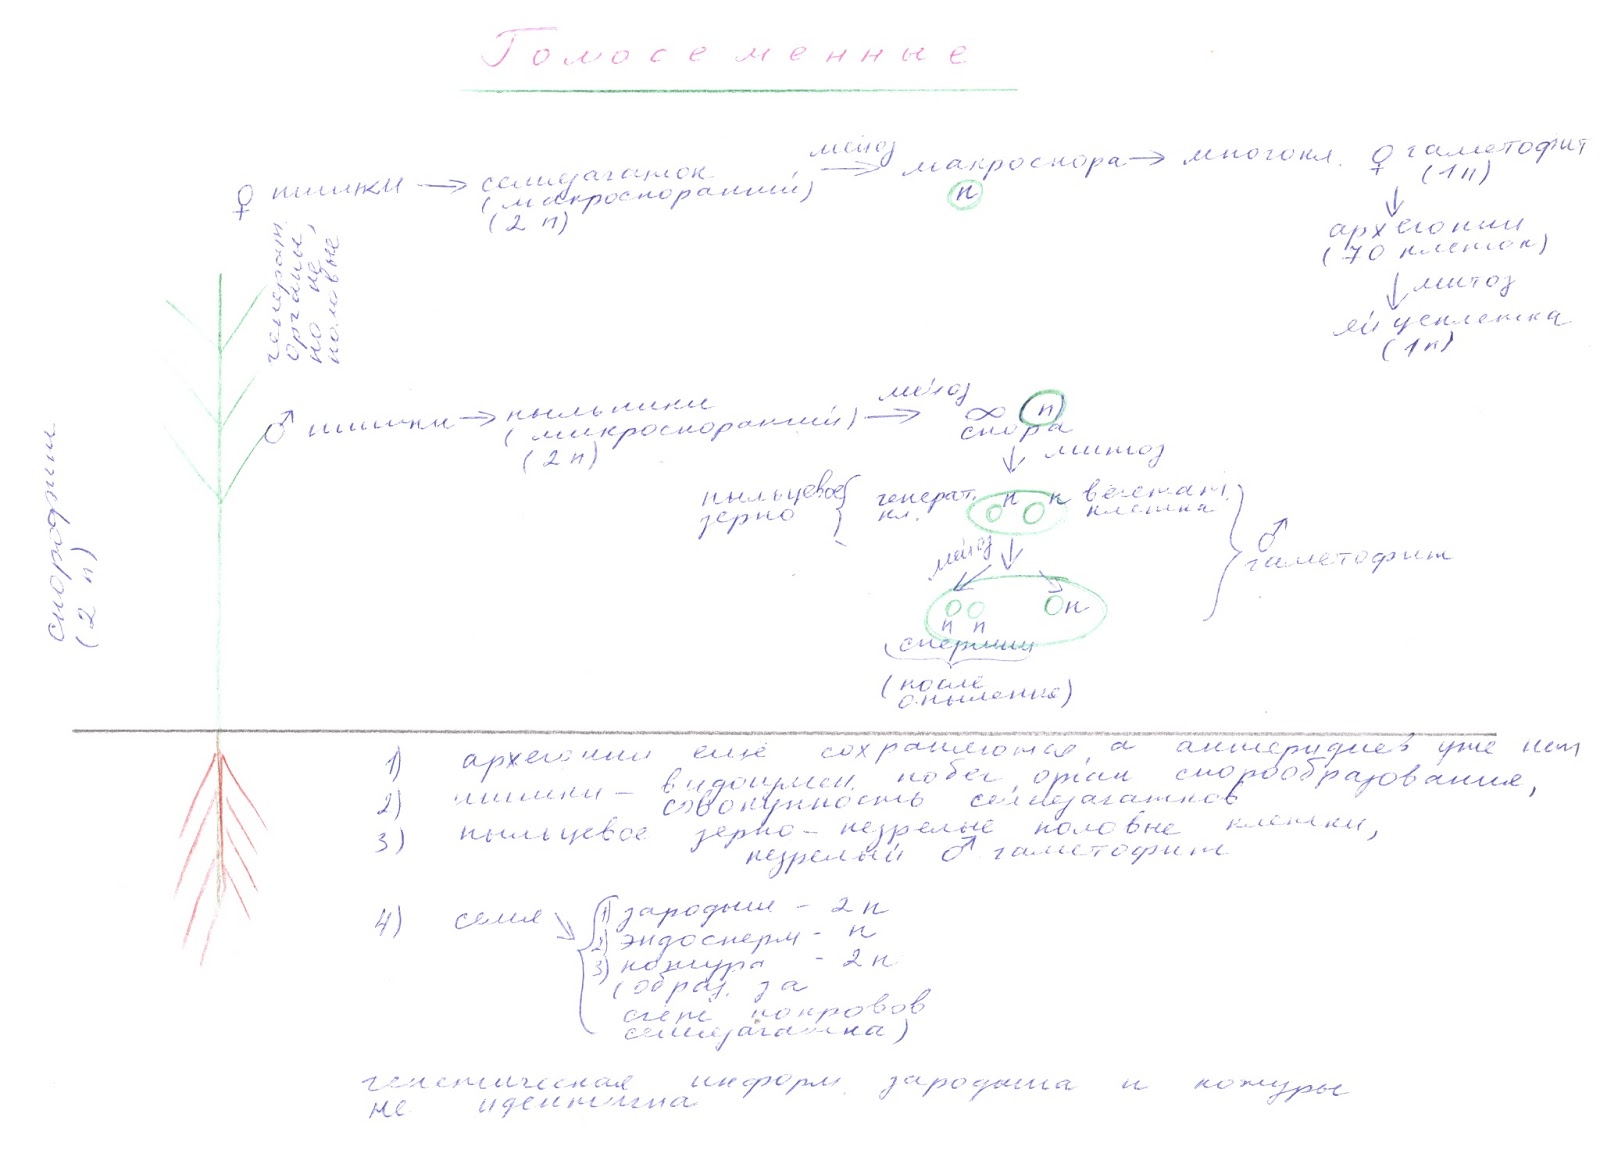 Голосеменные
♀ шишки → семязачаток мейоз → макроспора → многокл. ♀ гаметофит
(микроспорангий)
(2 n)
n
(1n)
↓
архегонии
(70 клеток)
↓ митоз
яйцеклетка
(1n)
генерат.
органы,
но не
половые
спорофит
(2 n)
♂ шишки → пыльники мейоз → ∞ n
(микроспорангий)
(2 n)
спора
↓ митоз
пыльцевое
зерно
генерат.
кл.
n n
вегетат.
клетка
♂
гаметофит
мейоз ↓
n
n n
спермии
(после
опыления)
1) архегонии ещё сохраняются, а антеридиев уже нет
2) шишки – видоизмен. побег, орган спорообразования,
совокупность семязачатков
3) пыльцевое зерно – незрелые половые клетки,
незрелый ♂ гаметофит
4) семя
1) зародыш – 2n
2) эндосперм – n
3) кожура – 2n
(образ. за
счёт покровов
семязачатка)
генетическая информ. зародыша и кожуры
не идентична